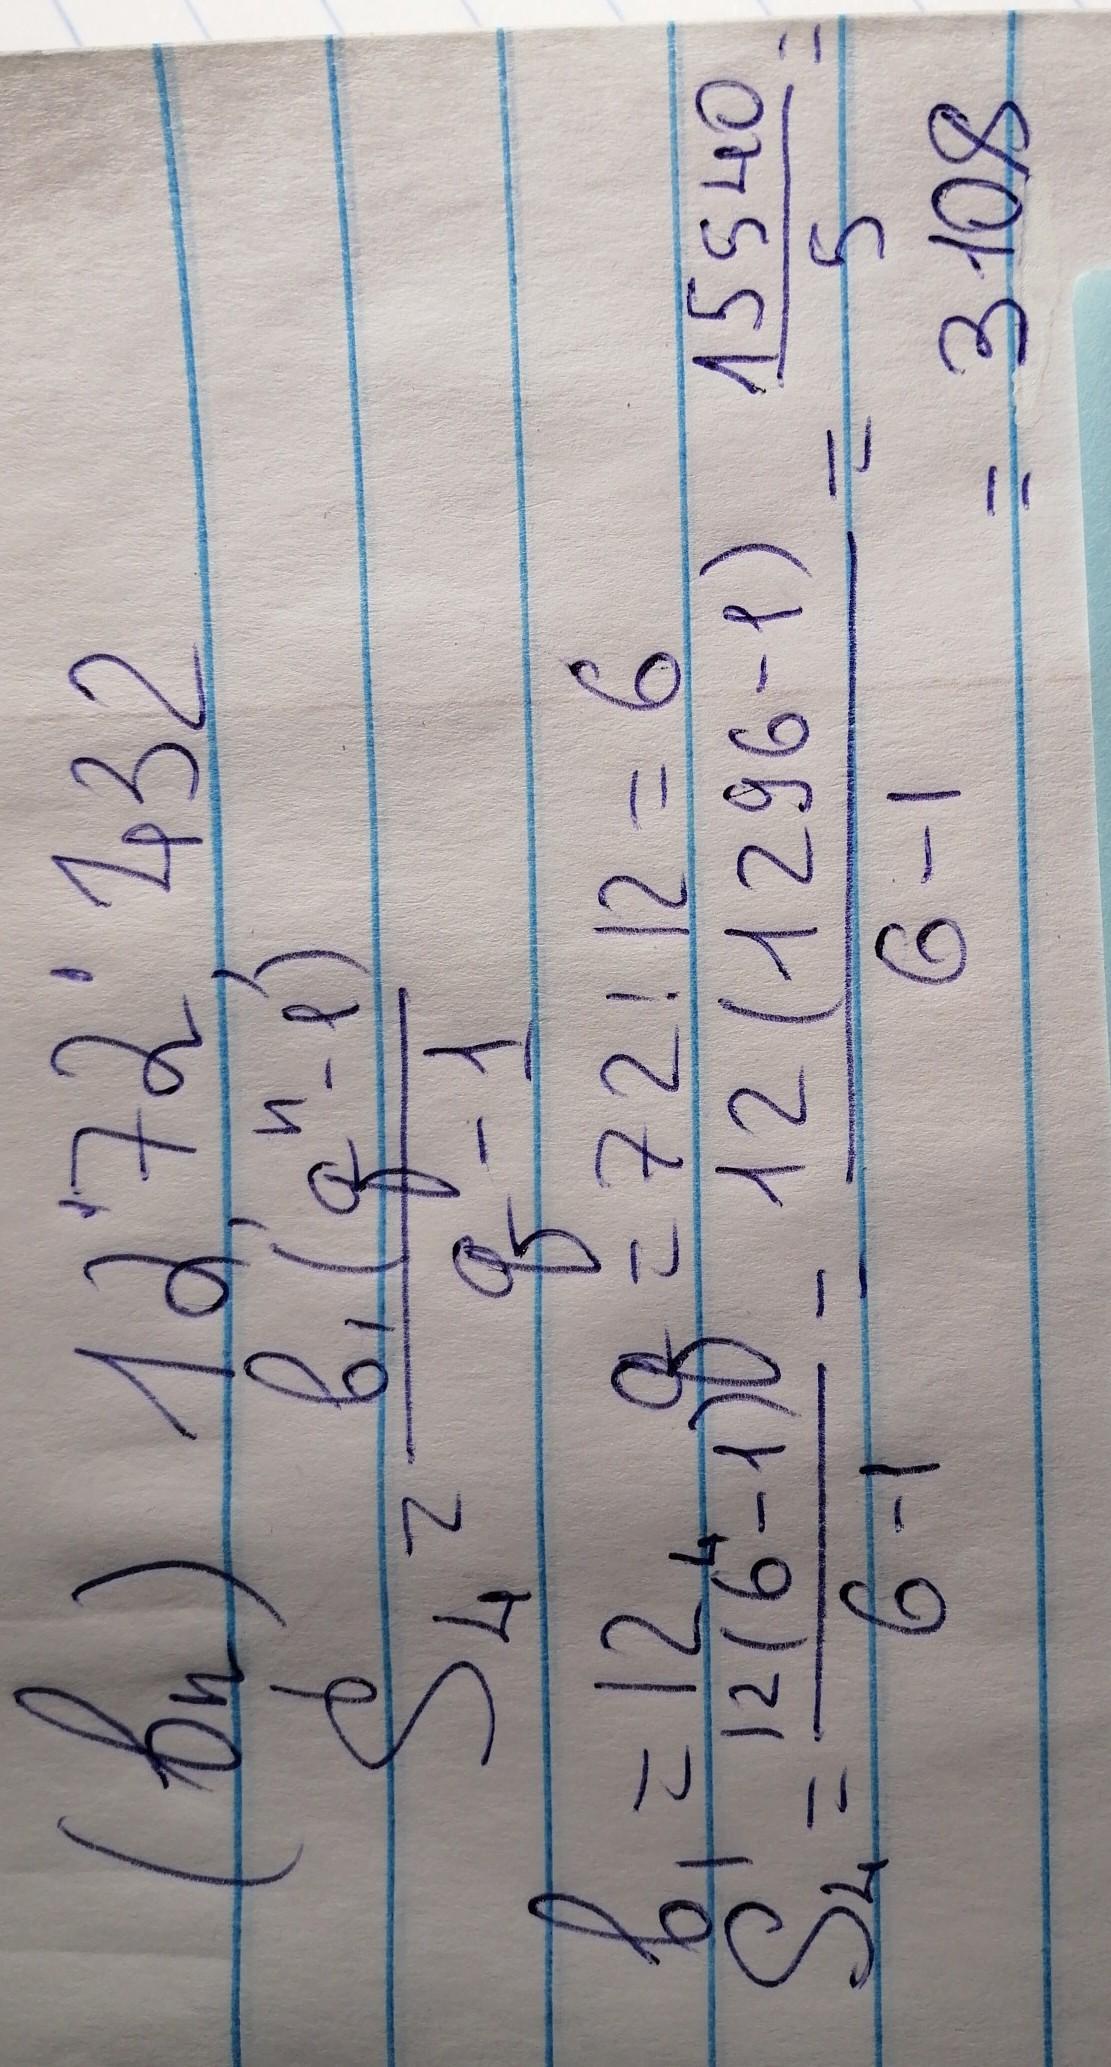 (bn) 12, 72, 432
S4 = b1(q^n-1)/q-1
b1 = 12 q = 72:12 = 6
S4 = 12(6^4-1)/6-1 = 12(1296-1)/6-1 = 15540/5 =
= 3108